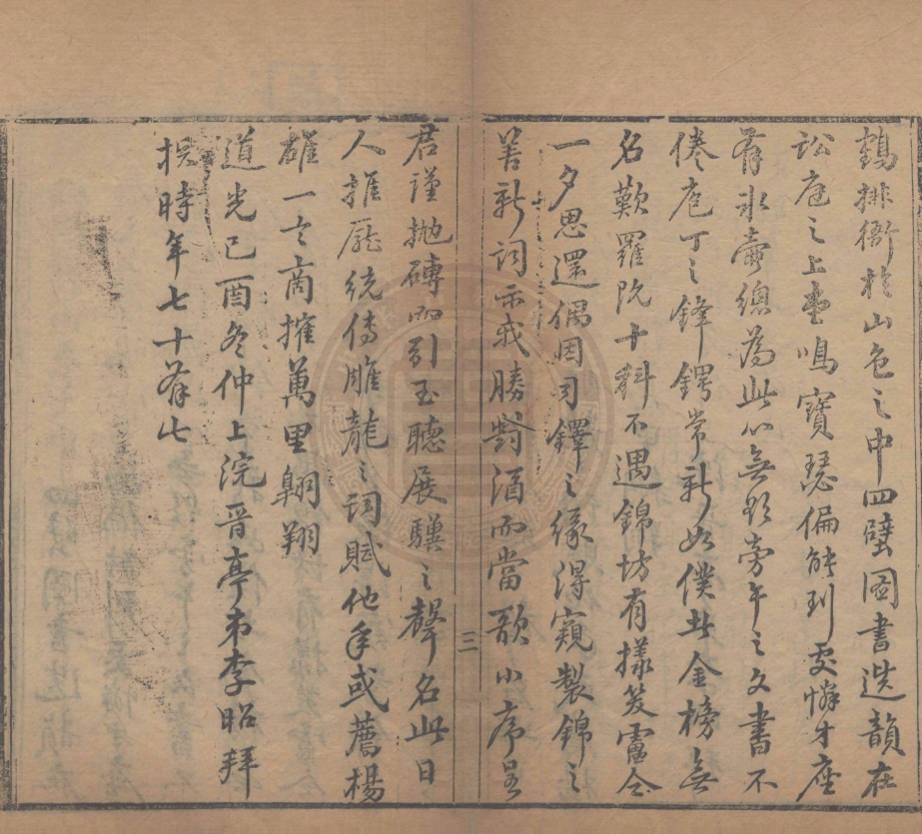 鶴排衙於山色之中四壁图書選韻在
訟庭之上堂鳴寶瑟偏能到處憐才座
有冰壺總為此心無欲旁午之文書不
倦庖丁之鋒鍔常新如僕者金榜無
名歎羅隐十科不遇錦坊有樣笑雷仝
一夕思還偶因司鐸之緣得窺製錦之
善新詞示我勝對酒而當歌小序呈
三
君謹拋磚而引玉聽展驥之聲名此日
人推龐統傳雕龍之詞賦他年或薦楊
雄一言商搉萬里翱翔
道光己酉冬仲上浣晋亭弟李昭拜
撰時年七十有七